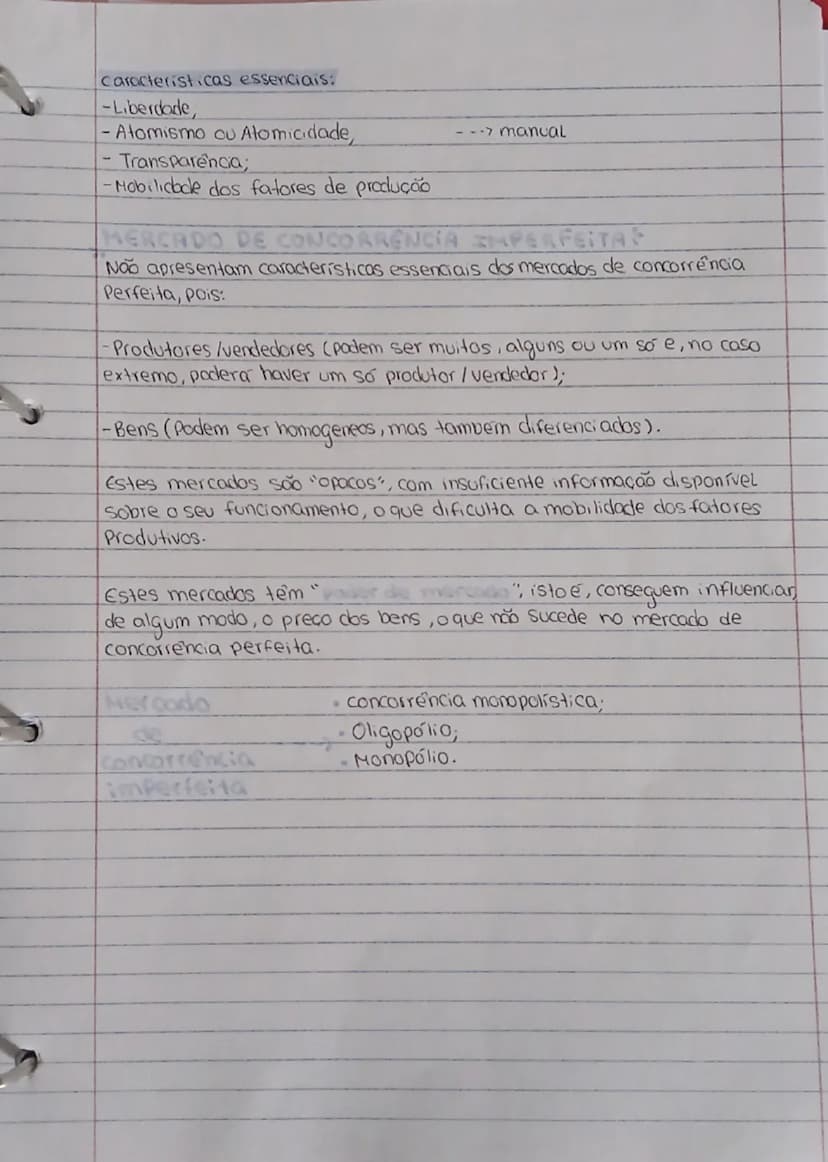 Caracteristicas essenciais:
-Liberdade,
- Atomismo ou Atomicidade, ---> manual
- Transparência;
-Mobilidade dos fatores de produção
MERCADO DE CONCORRÊNCIA IMPERFEITA:
Não apresentam características essenciais dos mercados de concorrência
Perfeita, pois:
-Produtores/vendedores (podem ser muitos, alguns ou um só e, no caso
extremo, poderá haver um só produtor/vendedor);
-Bens (Podem ser homogeneos, mas também diferenciados).
Estes mercados são "opacos", com insuficiente informação disponível
sobre o seu funcionamento, o que dificulta a mobilidade dos fatores
Produtivos.
Estes mercados têm "poder de mercado", isto é, conseguem influenciar,
de algum modo, o preço dos bens, o que não sucede no mercado de
concorrência perfeita.
Mercado • concorrência monopolística;
de → • Oligopólio;
concorrência • Monopólio.
imperfeita